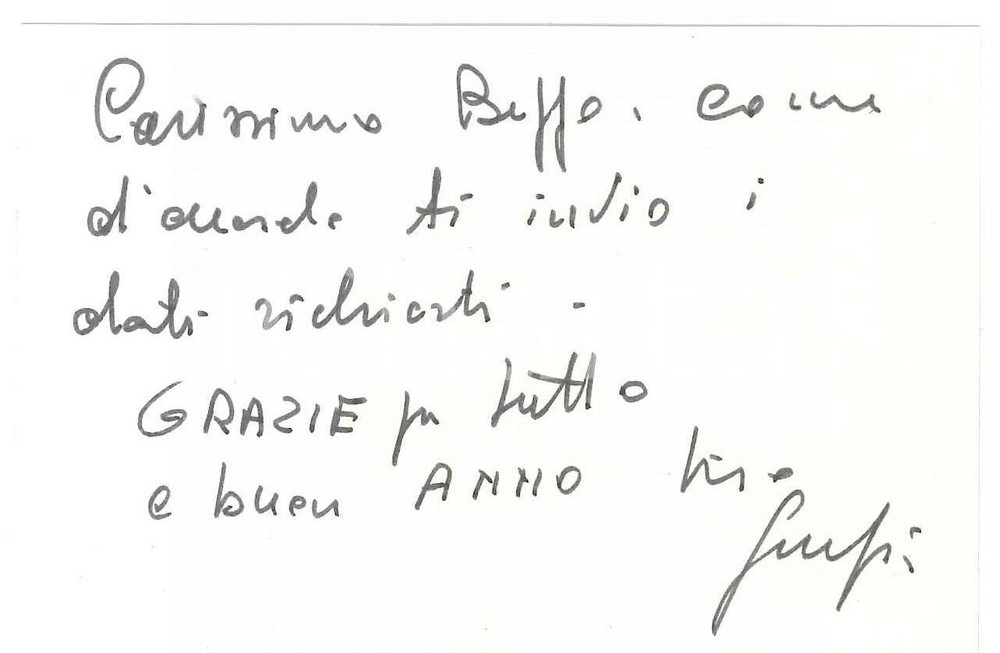 Carissimo Beppo, come
d'accordo ti invio i
dati richiesti -
GRAZIE per tutto
e buon ANNO